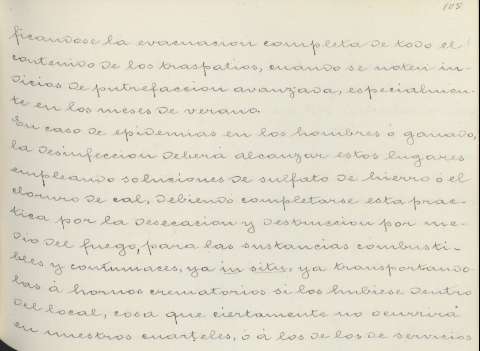 108
ficandose la evacuacion completa de todo el
contenido de los traspatios, cuando se noten in-
dicios de putrefaccion avanzada, especialmen-
te en los meses de verano.
En caso de epidemias en los hombres ó ganado,
la desinfeccion deberá alcanzar estos lugares
empleando soluciones de sulfato de hierro ó el
cloruro de cal, debiendo completarse esta prac-
tica por la desecacion y destruccion por me-
dio del fuego, para las sustancias combusti-
bles y contumaces, ya in situ, ya transportando-
las á hornos crematorios si los hubiese dentro
del local, cosa que ciertamente no ocurrirá
en nuestros cuarteles, ó á los de los de servicios